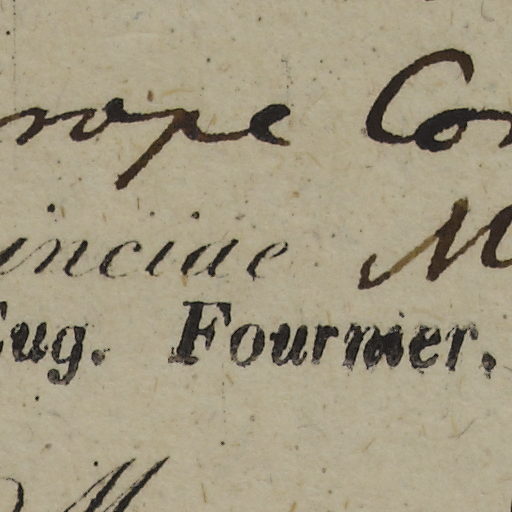 rope Con
inciae M
Eug. Fournier.
M